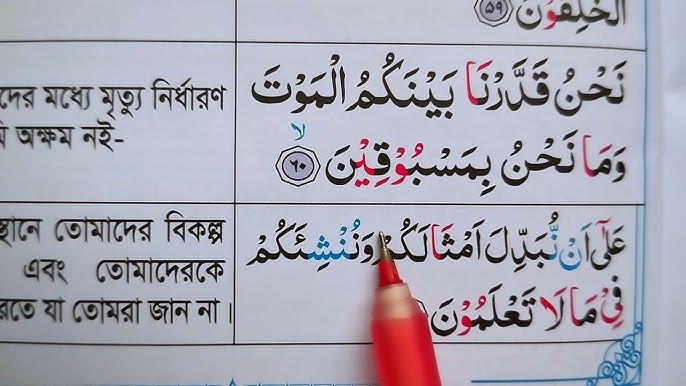 الْخٰلِقُوْنَ ﴿٥٩﴾
نَحْنُ قَدَّرْنَا بَيْنَكُمُ الْمَوْتَ
وَمَا نَحْنُ بِمَسْبُوْقِيْنَ ﴿٦٠﴾ ۙ
عَلٰٓى اَنْ نُّبَدِّلَ اَمْثَالَكُمْ وَنُنْشِئَكُمْ
فِيْ مَا لَا تَعْلَمُوْنَ
দের মধ্যে মৃত্যু নির্ধারণ
অক্ষম নই-
স্থানে তোমাদের বিকল্প
এবং তোমাদেরকে
রতে যা তোমরা জান না।